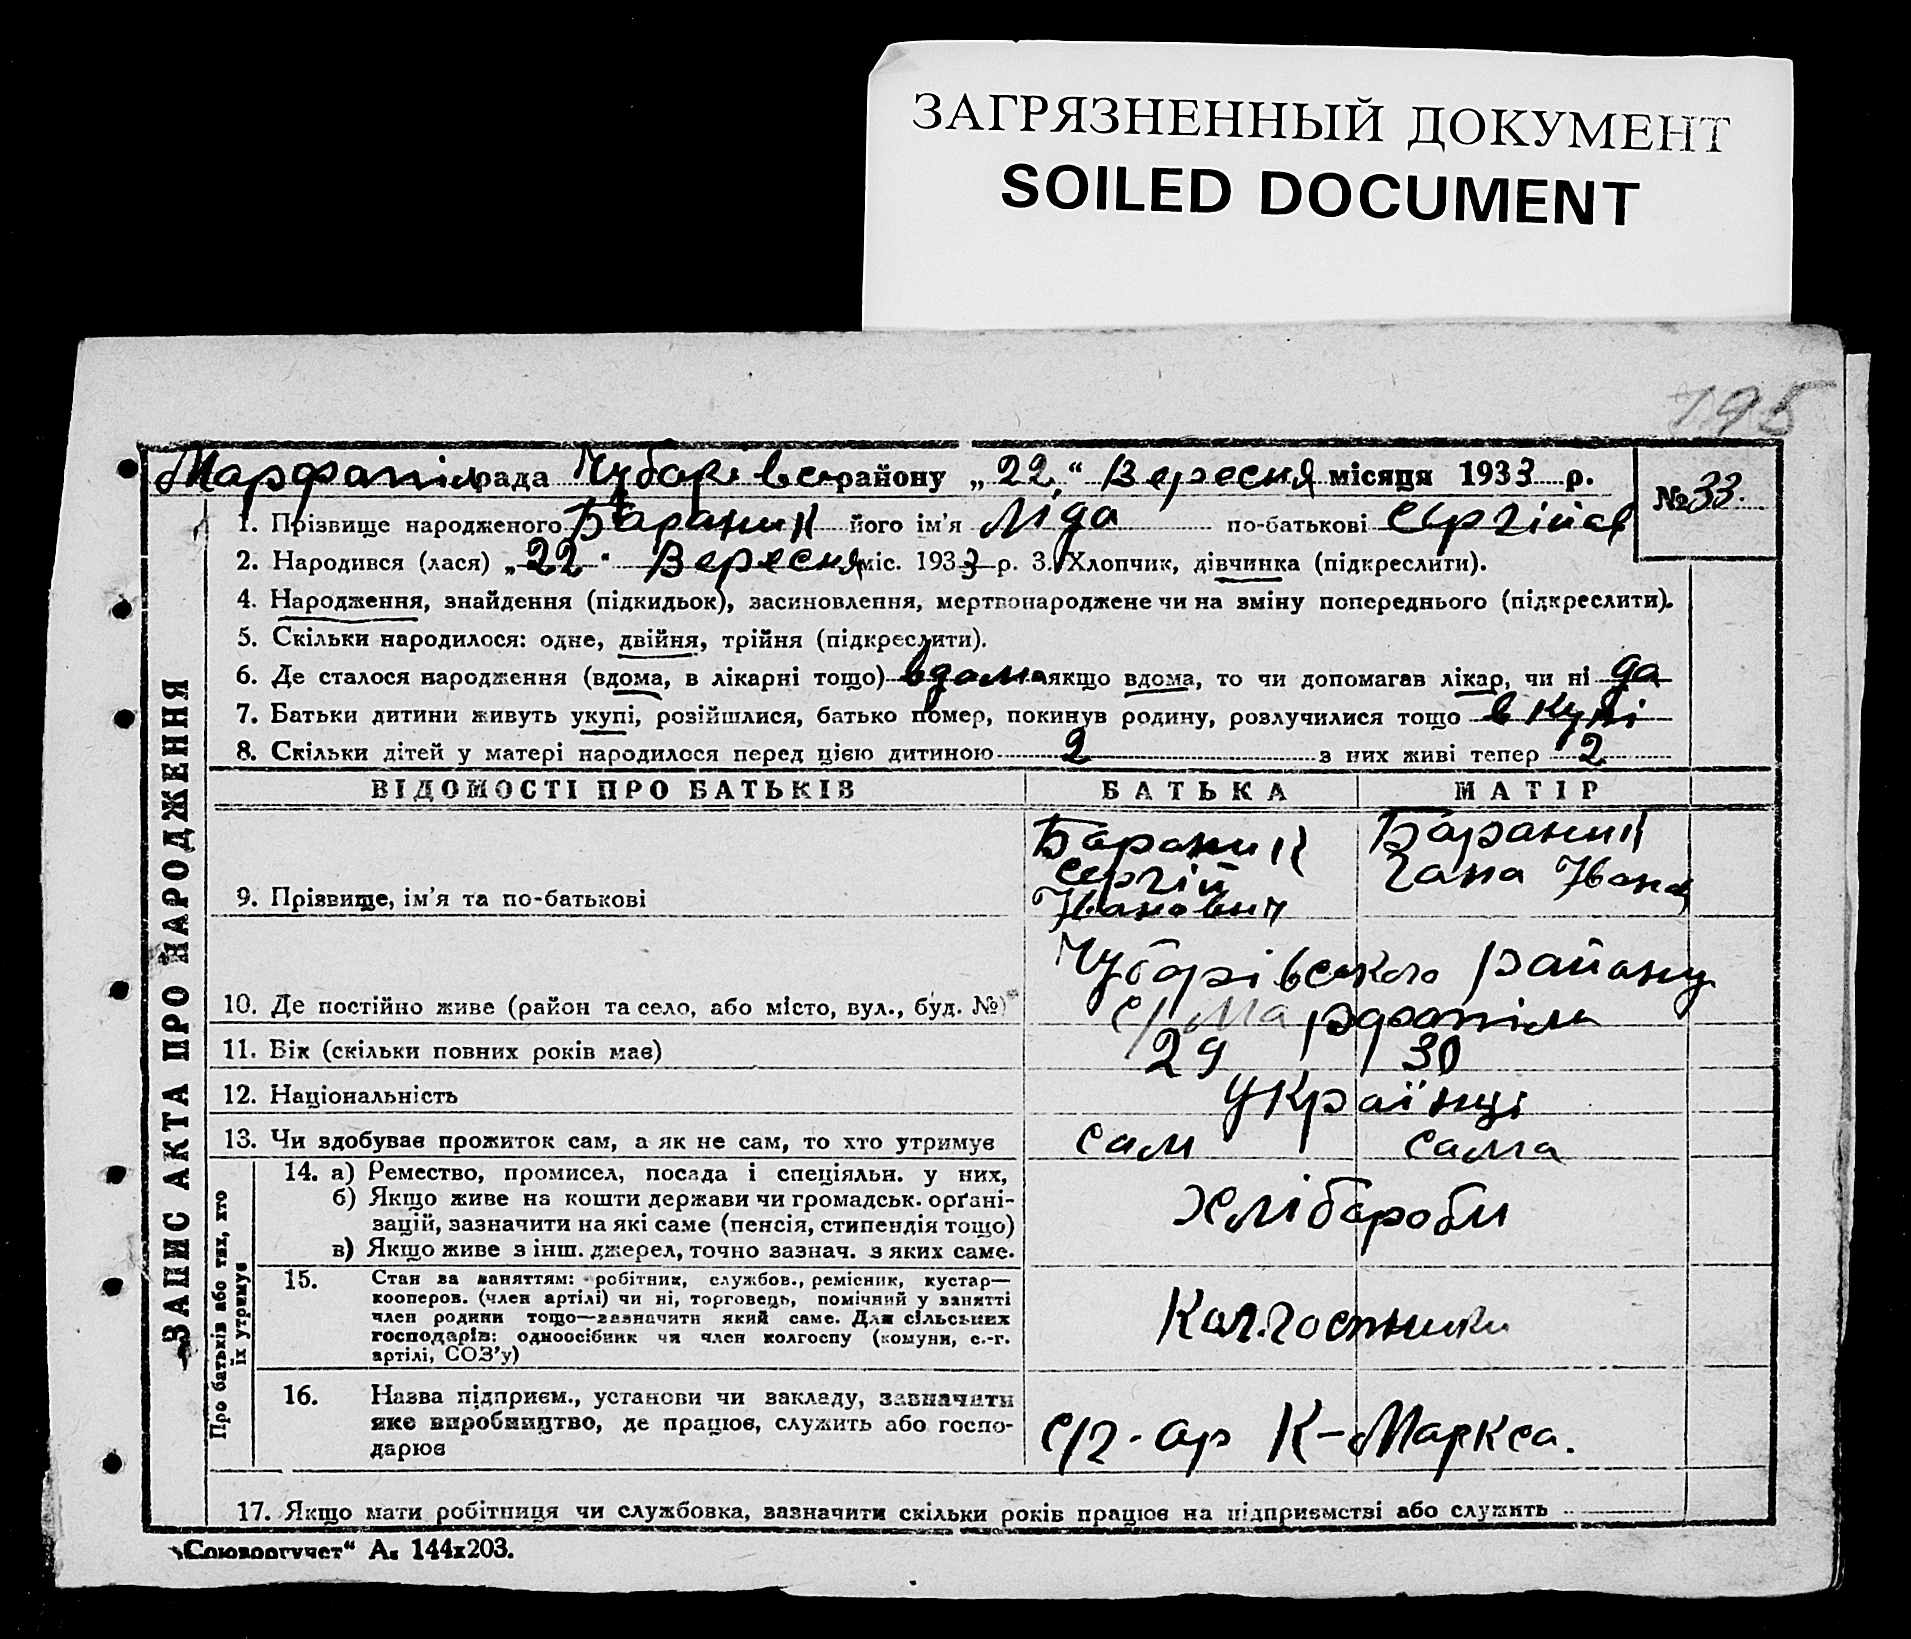 ЗАГРЯЗНЕННЫЙ ДОКУМЕНТ
SOILED DOCUMENT
195
Марфопіл рада Чубарівс району „22“ Вересня місяця 1933 р. №33.
1. Прізвище народженого Бараник його ім’я Ліда по-батькові Сергіїв
2. Народився (лася) „22. Вересня міс. 1933 р. 3. Хлопчик, дівчинка (підкреслити).
4. Народження, знайдення (підкидьок), засиновлення, мертвонароджене чи на зміну попереднього (підкреслити).
5. Скільки народилося: одне, двійня, трійня (підкреслити).
6. Де сталося народження (вдома, в лікарні тощо) вдома якщо вдома, то чи допомагав лікар, чи ні да
7. Батьки дитини живуть укупі, розійшлися, батько помер, покинув родину, розлучилися тощо в купі
8. Скільки дітей у матері народилося перед цією дитиною 2 з них живі тепер 2
ЗАПИС АКТА ПРО НАРОДЖЕННЯ
ВІДОМОСТІ ПРО БАТЬКІВ БАТЬКА МАТІР
Бараник Бараник
Сергій Гана Іванов
9. Прізвище, ім’я та по-батькові Іванович
Чубарівського району
10. Де постійно живе (район та село, або місто, вул., буд. №) с/Марфопіль
11. Вік (скільки повних років має) 29 30
12. Національність українці
13. Чи здобуває прожиток сам, а як не сам, то хто утримує сам сама
Про батьків або тих, хто
їх утримує
14. а) Ремество, промисел, посада і спеціяльн. у них,
б) Якщо живе на кошти держави чи громадськ. орґані- хлібороби
зацій, зазначити на які саме (пенсія, стипендія тощо)
в) Якщо живе з інш. джерел, точно зазнач. з яких саме.
15. Стан за заняттям: робітник, службов., ремісник, кустар—
кооперов. (член артілі) чи ні, торговець, помічний у занятті
член родини тощо—зазначити який саме. Для сільських Кол.госпники
господарів: одноосібник чи член колгоспу (комуни, с.-г.
артілі, СОЗ’у)
16. Назва підприєм., установи чи закладу, зазначити
яке виробництво, де працює, служить або госпо- с/г. ар К-Маркса.
дарює
17. Якщо мати робітниця чи службовка, зазначити скільки років працює на підприємстві або служить
„Союзоргучет“ А₅ 144х203.